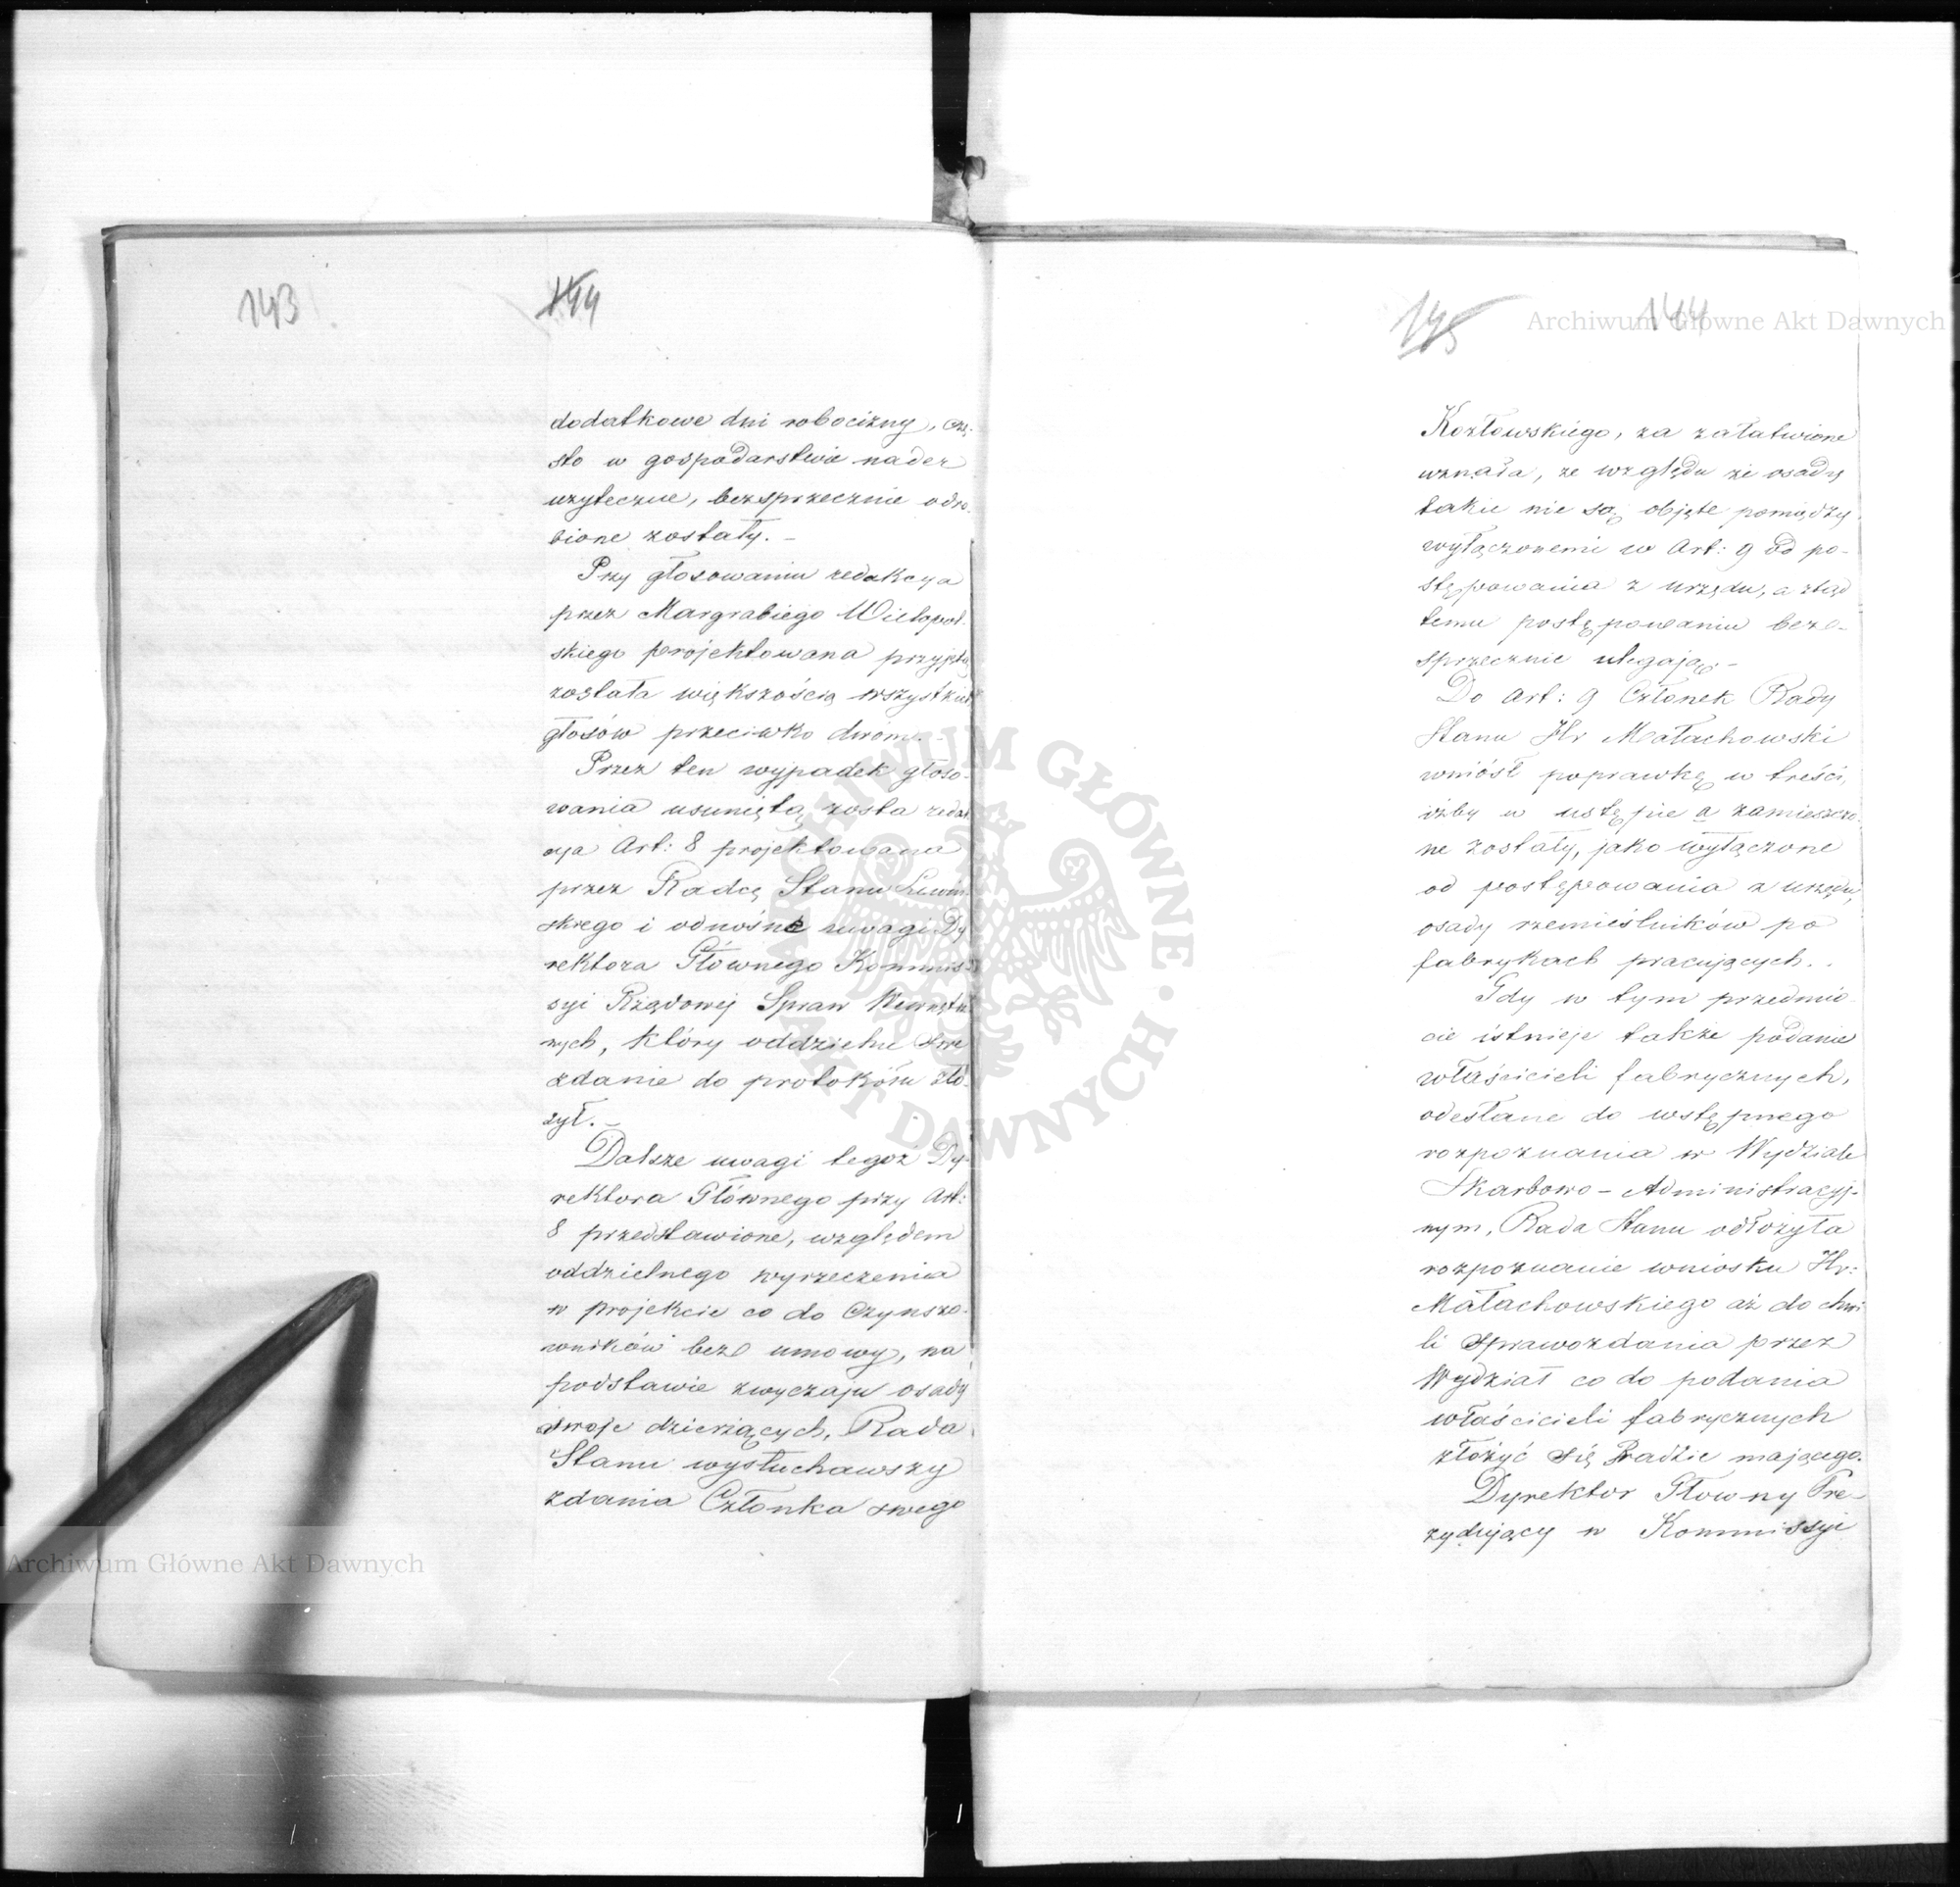 143
144
dodatkowe dni robocizny, czę-
sto w gospodarstwie nader
użyteczne, bezsprzecznie odro-
bione zostały. -
Przy głosowaniu redakcya
przez Margrabiego Wielopol-
skiego projektowana przyjętą
została większością wszystkich
głosów przeciwko dwom. -
Przez ten wypadek głoso-
wania usuniętą zosta redak-
cya Art: 8 projektowana
przez Radcę Stanu
skiego i odnośne uwagi Dy
rektora Głównego Kommis-
syi Rządowej Spraw Wewnętrz
nych, który oddzielne swe
zdanie do protokółu zło-
żył. -
Dalsze uwagi tegoż Dy-
rektora Głównego przy Art:
8 przedstawione, względem
oddzielnego wyrzeczenia
w projekcie co do Czynszo-
wników bez umowy, na
podstawie zwyczaju osady
swoje dzierżących, Rada
Stanu wysłuchawszy
zdania Członka swego
145
144
Kozłowskiego, za załatwione
uznała, ze względu że osady
takie nie są objęte pomiędzy
wyłączonemi w Art: 9 od po-
stępowania z urzędu, a ztąd
temu postępowaniu bez-
sprzecznie ulegają. -
Do Art: 9 Członek Rady
Stanu Hr Małachowski
wniósł poprawkę w treści,
iżby w ustępie a zamieszczo-
ne zostały, jako wyłączone
od postępowania z urzędu,
osady rzemieślników po
fabrykach pracujących. .
Gdy w tym przedmio
cie istnieje także podanie
właścicieli fabrycznych,
odesłane do wstępnego
rozpoznania w Wydziale
Skarbowo - Administracyj-
nym, Rada Stanu odłożyła
rozpoznanie wniosku Hr:
Małachowskiego aż do chwi
li sprawozdania przez
Wydział co do podania
właścicieli fabrycznych
złożyć się Radzie mającego.
Dyrektor Głowny Pre-
zydujący w Kommissyi
Archiwum Główne Akt Dawnych
Archiwum Główne Akt Dawnych
ARCHIWUM GŁÓWNE • AKT DAWNYCH •